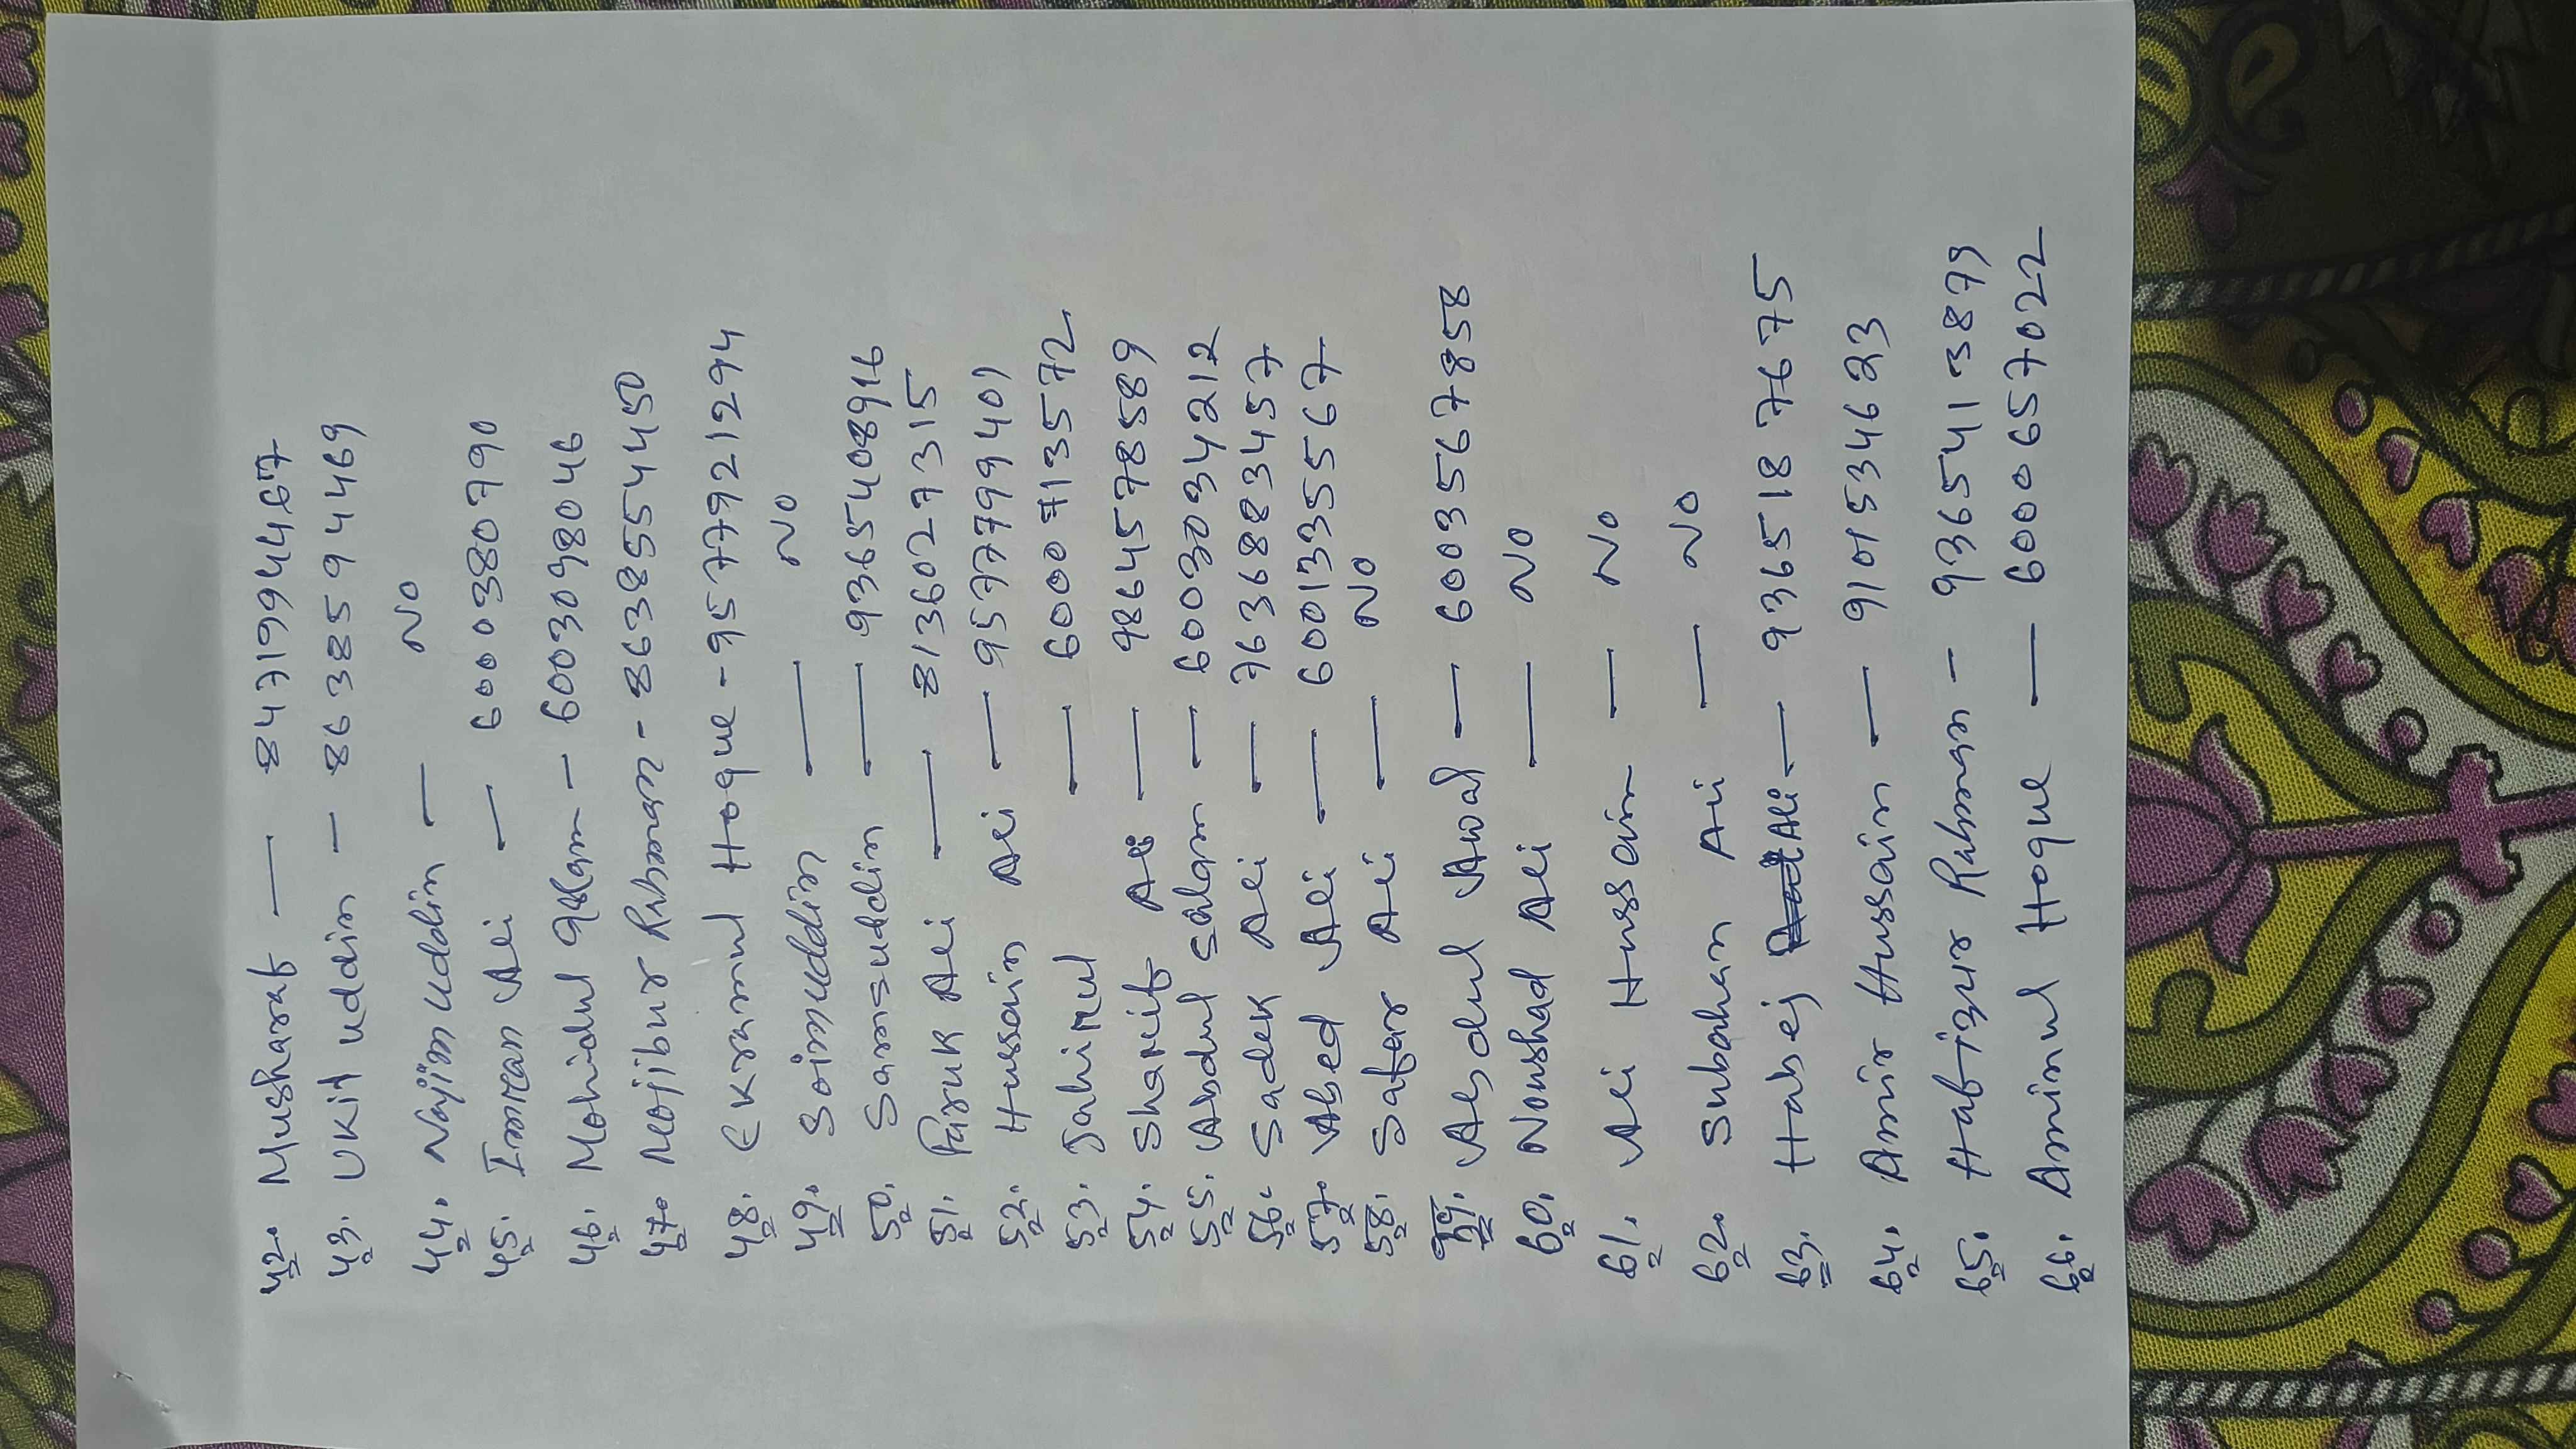 42. Musharaf — 8471994467
43. Ukil uddin — 8638594469
44. Najim uddin — No
45. Imran Ali — 6000380790
46. Mohidul Islam — 6003098046
47. Mojibur Rahman - 8638554450
48. Ekramul Hoque - 9577921294
49. Soimuddin — No
50. Samsuddin — 9365408916
51. Faruk Ali — 8136027315
52. Hussain Ali — 9577799401
53. Jahirul — 6000713572
54. Sharif Ali — 9864578589
55. Abdul salam — 6003034212
56. Sadek Ali — 7636883457
57. Abed Ali — 6001335567
58. Safar Ali — No
59. Abdul Awal — 6003567858
60. Noushad Ali — No
61. Ali Hussain — No
62. Subahan Ali — No
63. Habej Ali — 9365187675
64. Amir Hussain — 9101534623
65. Hafizur Rahman — 9365413879
66. Aminul Hoque — 6000657022